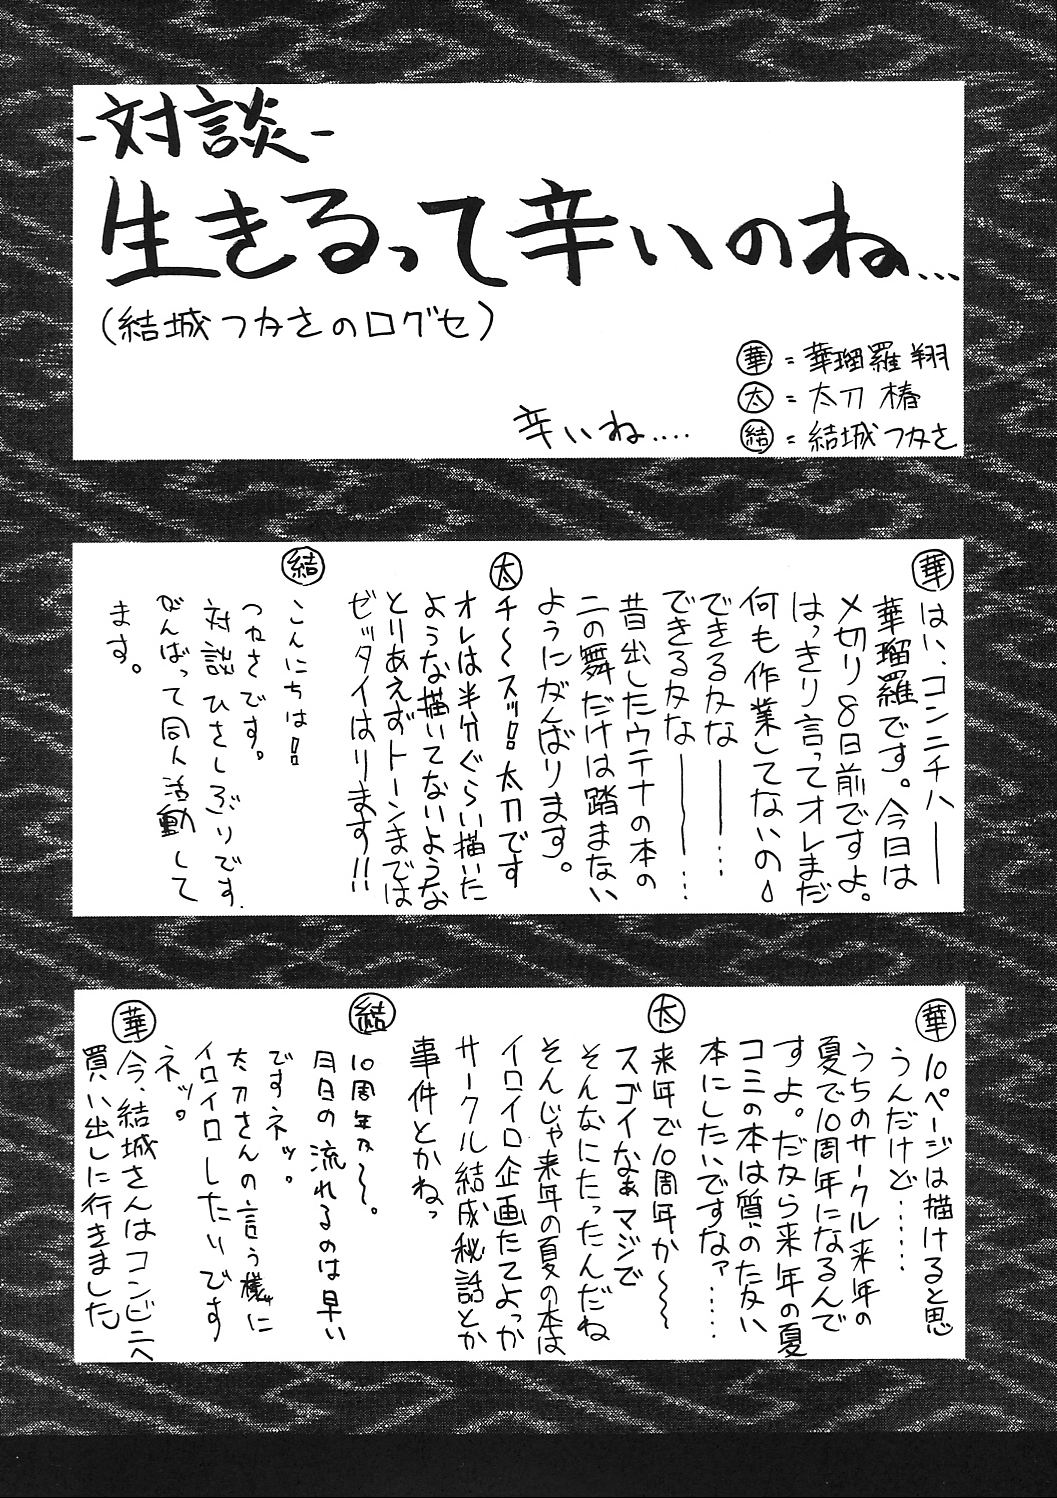 -対談-
生きるって辛いのね…
(結城つかさの口グセ)
辛いね‥‥
華=華瑠羅翔
太=太刀椿
結=結城つかさ
華
はい、コンニチハ――
華瑠羅です。今日は
〆切り8日前ですよ。
はっきり言ってオレまだ
何も作業してないの
できるかな――…
できるかな――…
昔出したウテナの本の
二の舞だけは踏まない
ようにがんばります。
太
チ〜〜スッ!!太刀です
オレは半分ぐらい描いた
ような描いてないような
とりあえずトーンまでは
ゼッタイはります!!
結
こんにちは!!
つかさです。
対談ひさしぶりです.
がんばって同人活動して
ます。
華
10ページは描けると思
うんだけど……
うちのサークル来年の
夏で10周年になるんで
すよ。だから来年の夏
コミの本は質のたかい
本にしたいですなァ……
太
来年で10周年か〜〜〜
スゴイなぁマジで
そんなにたったんだね
そんじゃ来年の夏の本は
イロイロ企画たてよっか
サークル結成秘話とか
事件とかねっ
結
10周年か〜〜。
月日の流れるのは早い
ですネッ。
太刀さんの言う様に
イロイロしたいです
ネッ。
華
今、結城さんはコンビニへ
買い出しに行きました